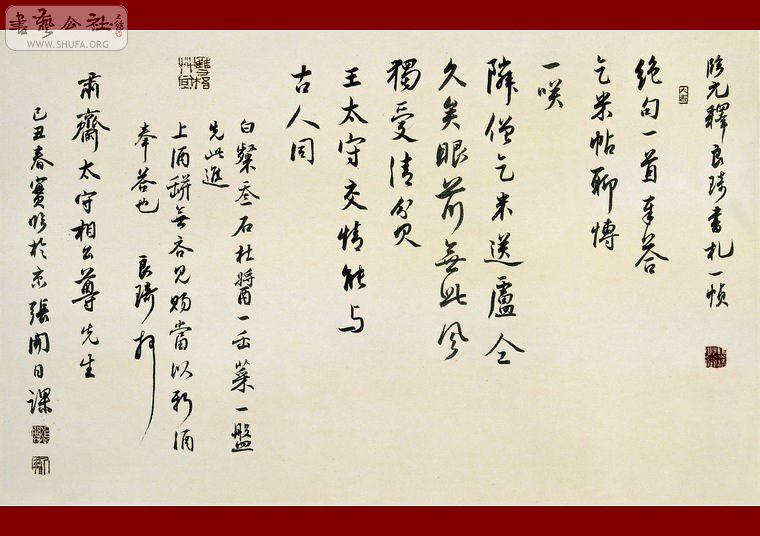 書藝公社
WWW.SHUFA.ORG
臨元釋良琦書札一幀
絶句一首奉答
乞米帖聊博
一咲
隣僧乞米送盧仝
久矣眼前無此風
獨受清分
王太守交情能与
古人同
白粲叁石杜醬一缶菜一盤
先此進
上酒瓶無吝見賜當以新酒
奉答也 良琦
肅齋太守相公尊先生
己丑春賓於京張開日課